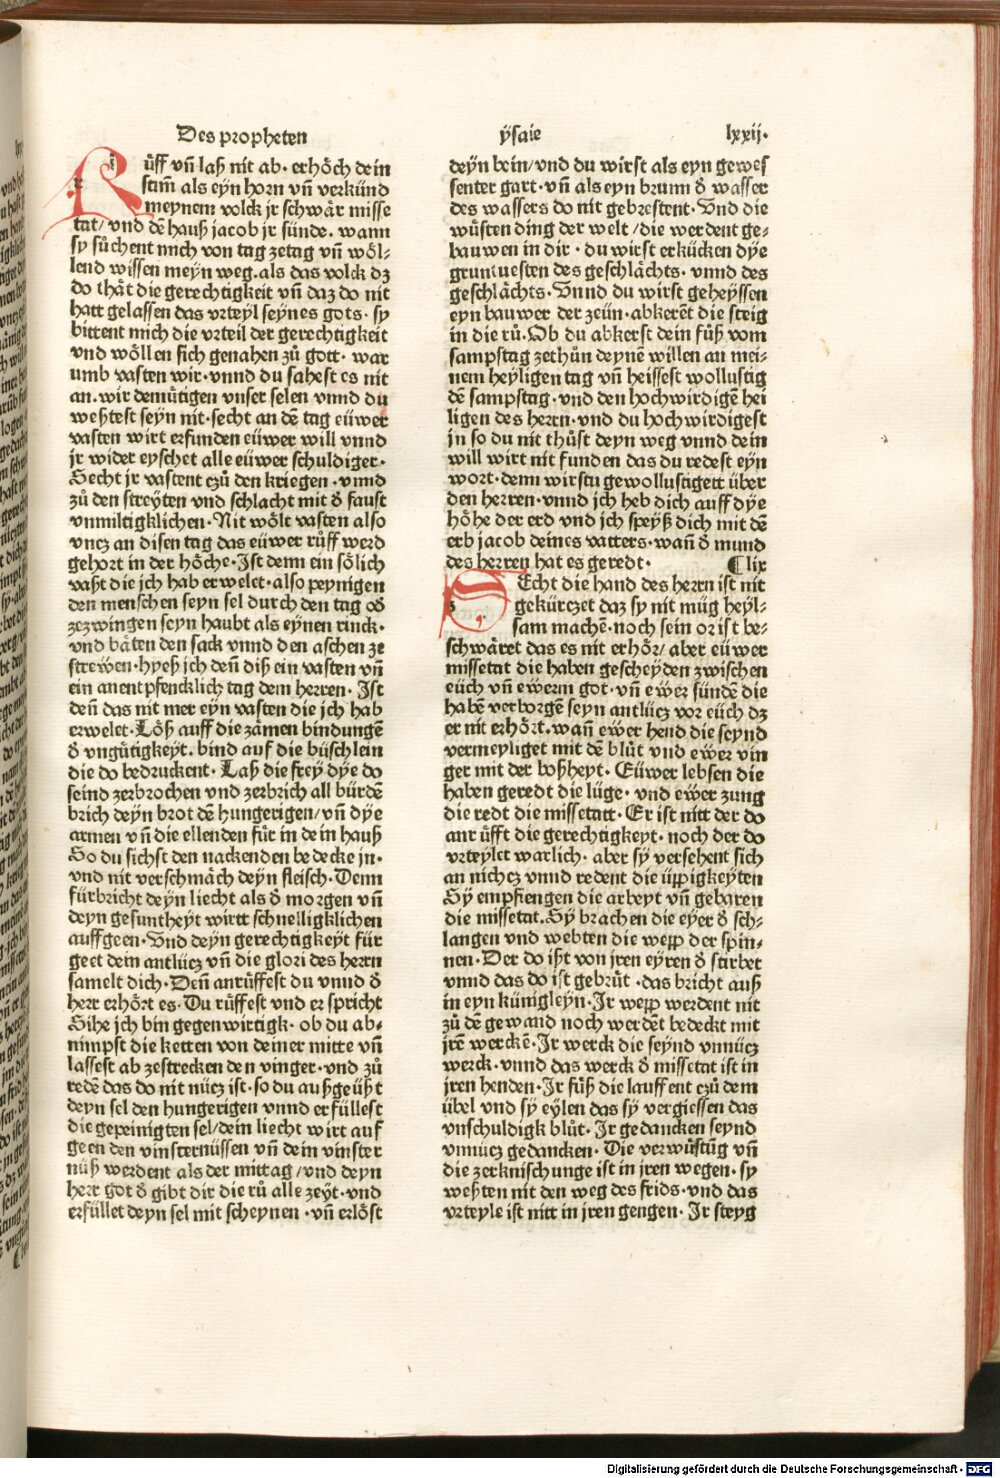 Des propheten
Rüff vñ laß nit ab· erhöch dein
stim̃ als eyn horn vñ verkünd
meynem volck jr schwär misse
tat/ vnd dẽ hauß jacob jr sünde· wann
sy sůchent mich von tag zetag vñ wöl⸗
lend wissen meyn weg·als das volck dz
do thät die gerechtigkeit vñ daz do nit
hatt gelassen das vrteyl seynes gots· sy
bittent mich die vrteil der gerechtigkeit
vnd wöllen sich genahen zů gott· war
umb vasten wir·vnnd du sahest es nit
an·wir demütigen vnser selen vnnd du
weßtest seyn nit·secht an dẽ tag eüwer
vasten wirt erfunden eüwer will vnnd
jr wider eyschet alle eüwer schuldiger·
Secht jr vastent czů den kriegen·vnnd
zů den streyten vnd schlacht mit ð faust
vnmiltigklichen·Nit wölt vasten also
vncz an disen tag das eüwer rüff werd
gehort in der höche·Ist denn ein sölich
vaßt die jch hab erwelet·also peynigen
den menschen seyn sel durch den tag oð
zezwingen seyn haubt als eynen rinck·
vnd bäten den sack vnnd den aschen ze
strewen·hyeß jch deñ diß ein vasten vñ
ein anentpfencklich tag dem herren·Ist
deñ das nit mer eyn vasten die jch hab
erwelet·Löß auff die zämen bindungẽ
ð vngütigkeyt·bind auf die büschlein
die do bedruckent·Laß die frey dye do
seind zerbrochen vnd zerbrich all bürdẽ
brich deyn brot dẽ hungerigen/vñ dye
armen vñ die ellenden für in dein hauß
So du sichst den nackenden bedecke jn·
vnd nit verschmäch deyn fleisch·Denn
fürbricht deyn liecht als ð morgen vñ
deyn gesuntheyt wirtt schnelligklichen
auffgeen·Vnd deyn gerechtigkeyt für
geet dein antlücz vñ die glori des herrn
samelt dich·Deñ anrüffest du vnnd ð
herr erhört es·Du rüffest vnd er spricht
Sihe jch bin gegenwirtigk·ob du ab⸗
nimpst die ketten von deiner mitte vñ
lassest ab zestrecken den vinger·vnd zů
redẽ das do nit nücz ist·so du außgeüßt
deyn sel den hungerigen vnnd erfüllest
die gepeinigten sel/dein liecht wirt auf
geen den vinsternüssen vñ dein vinster
nüß werdent als der mittag/vnd deyn
herr got ð gibt dir die rů alle zeyt·vnd
erfüllet deyn sel mit scheynen·vñ erlöst
ÿsaie lxxij·
deÿn bein/vnd du wirst als eyn gewes
senter gart·vñ als eyn brunn ð wasser
des wassers do nit gebrestent·Vnd die
wůsten ding der welt/die werdent ge⸗
bauwen in dir·du wirst erkücken dÿe
gruntuesten des geschlächts·vnnd des
geschlächts·Vnnd du wirst geheyssen
eyn bauwer der zeün·abkerẽt die steig
in die rů·Ob du abkerst dein füß vom
sampstag zethůn deynẽ willen an mei⸗
nem heyligen tag vñ heissest wollustig
dẽ sampstag·vnd den hochwirdigẽ hei
ligen des herrn·vnd du hochwirdigest
jn so du nit thůst deyn weg vnnd dein
will wirt nit funden das du redest eyn
wort·denn wirstu gewollustigett über
den herren·vnnd jch heb dich auff dÿe
höhe der erd vnd jch speyß dich mit dẽ
erb jacob deines vatters·wañ ð mund
des herren hat es geredt· ¶lix
SEcht die hand des herrn ist nit
gekürczet daz sy nit müg heyl⸗
sam machẽ·noch sein or ist be⸗
schwäret das es nit erhör/aber eüwer
missetat die haben gescheyden zwischen
eüch vñ ewerm got·vñ ewer sündẽ die
habẽ verborgẽ seyn antlücz vor eüch dz
er nit erhört·wañ ewer hend die seynd
vermeyliget mit dẽ blůt vnd ewer vin
ger mit der boßheyt·Eüwer lebsen die
haben geredt die lüge·vnd ewer zung
die redt die missetatt·Er ist nitt der do
anrüfft die gerechtigkeyt·noch der do
vrteylet warlich·aber sÿ versehent sich
an nichcz vnnd redent die üppigkeyten
Sÿ empfiengen die arbeyt vñ gebaren
die missetat·Sÿ brachen die eyer ð sch⸗
langen vnd webten die wepp der spin⸗
nen·Der do ißt von jren eyren ð stirbet
vnnd das do ist gebrüt·das bricht auß
in eyn künigleÿn·Ir wepp werdent nit
zů dẽ gewand noch werdẽt bedeckt mit
jrẽ werckẽ·Ir werck die seÿnd vnnücz
werck·vnnd das werck ð missetat ist in
jren henden·Ir füß die lauffent czů dem
übel vnd sÿ eÿlen das sÿ vergiessen das
vnschuldigk blůt·Ir gedancken seynd
vnnücz gedancken·Die verwüstũg vñ
die zerknischunge ist in jren wegen·sy
weßten nit den weg des frids·vnd das
vrteyle ist nitt in jren gengen·Ir steyg
Digitalisierung gefördert durch die Deutsche Forschungsgemeinschaft · DFG